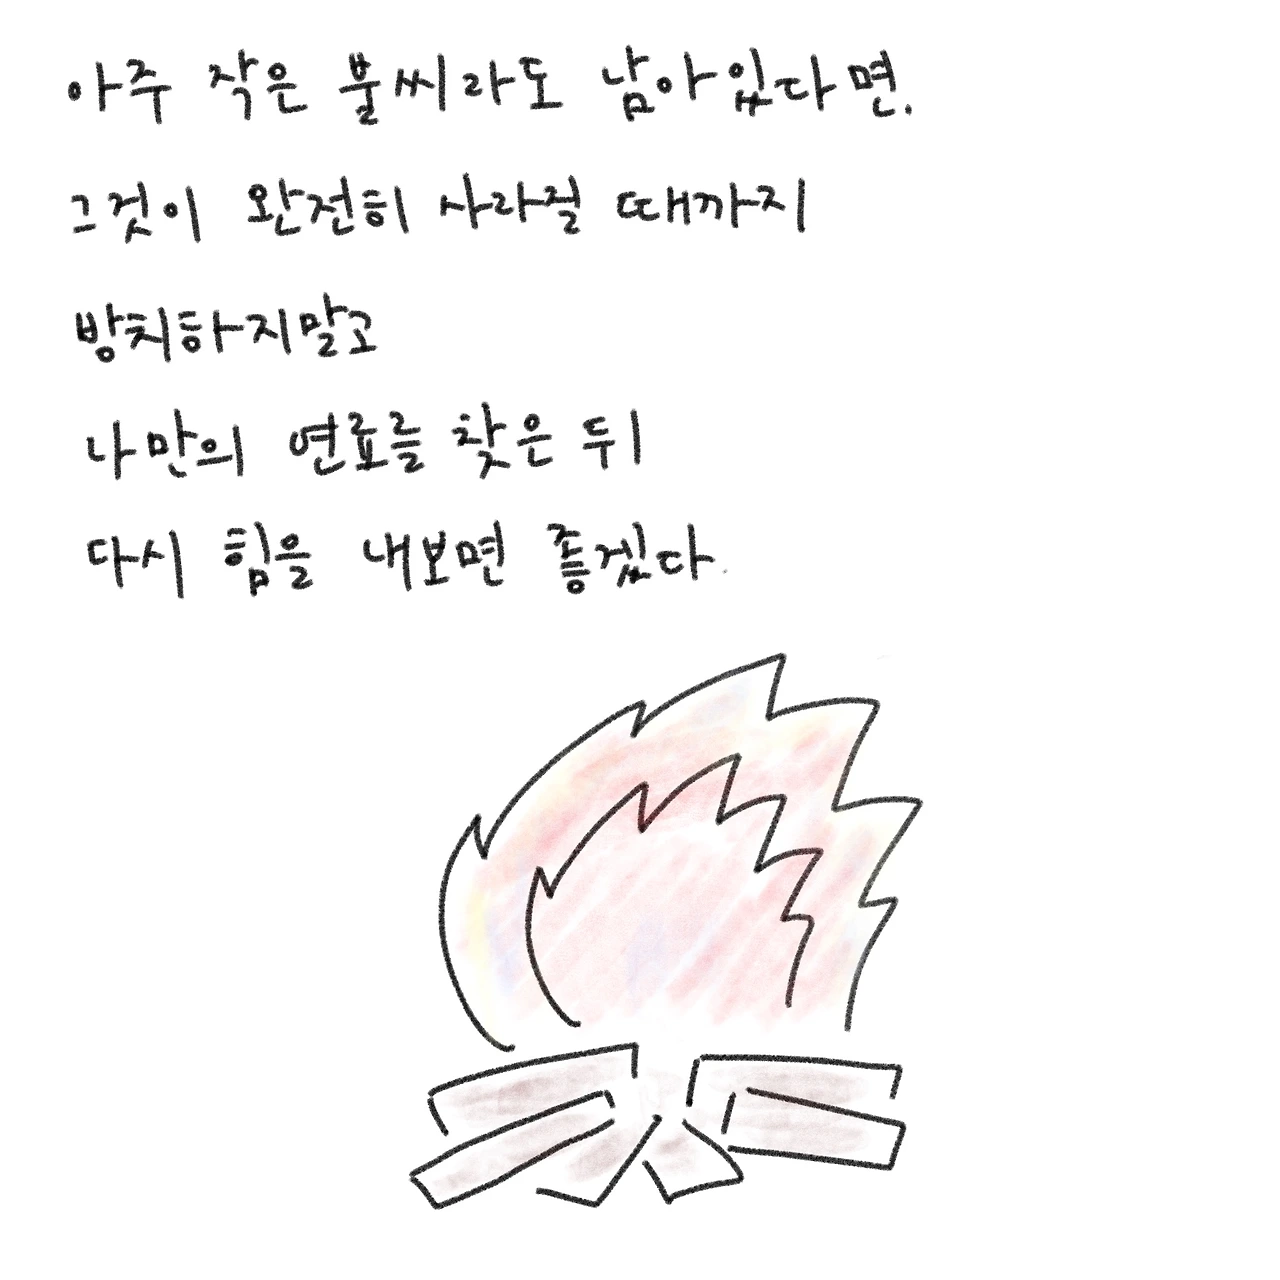 아주 작은 불씨라도 남아있다면.
그것이 완전히 사라질 때까지
방치하지말고
나만의 연료를 찾은 뒤
다시 힘을 내보면 좋겠다.